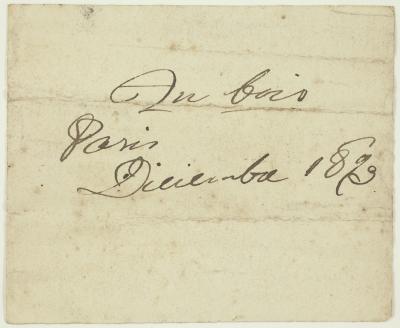 Au bois
Paris
Diciembre 1893